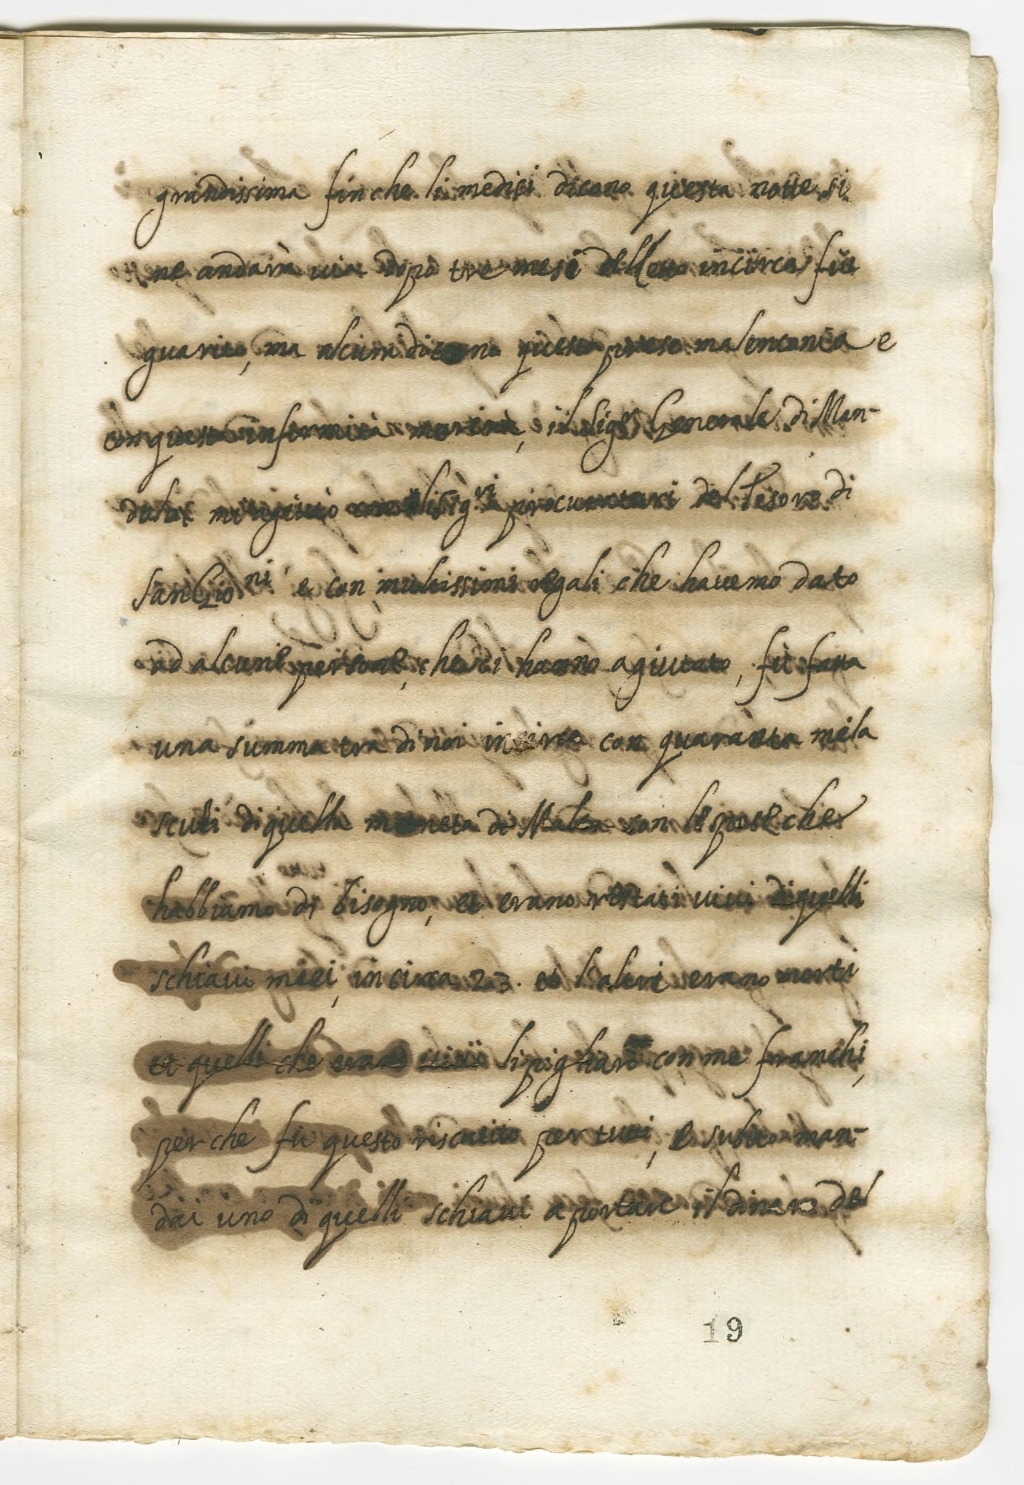 grandissima fin che li medici dicano questa notte si
ne andarà via dopo tre mesi incirca fu
guarito, ma alcuni dicono questo prese malenconia e
con questa infermità, il Sig.r Generale di Man-
li Sig.ri procuratori del Tesoro di
e con multissimi regali che havemo dato
ad alcune persone, che ci hanno agiutato, fu fatta
una summa tra di noi incirca con quaranta mila
scudi di quella moneta di Malta con le spese che
habbiamo di bisogno, et erano restati vivi di quelli
schiavi miei, incirca 23. et l'altri erano morti
et quelli che erano vivi li pigliaro con me franchi,
per che fu questo riscatito per tutti, e subito man-
dai uno di quelli schiavi a portare il dinaro del
19